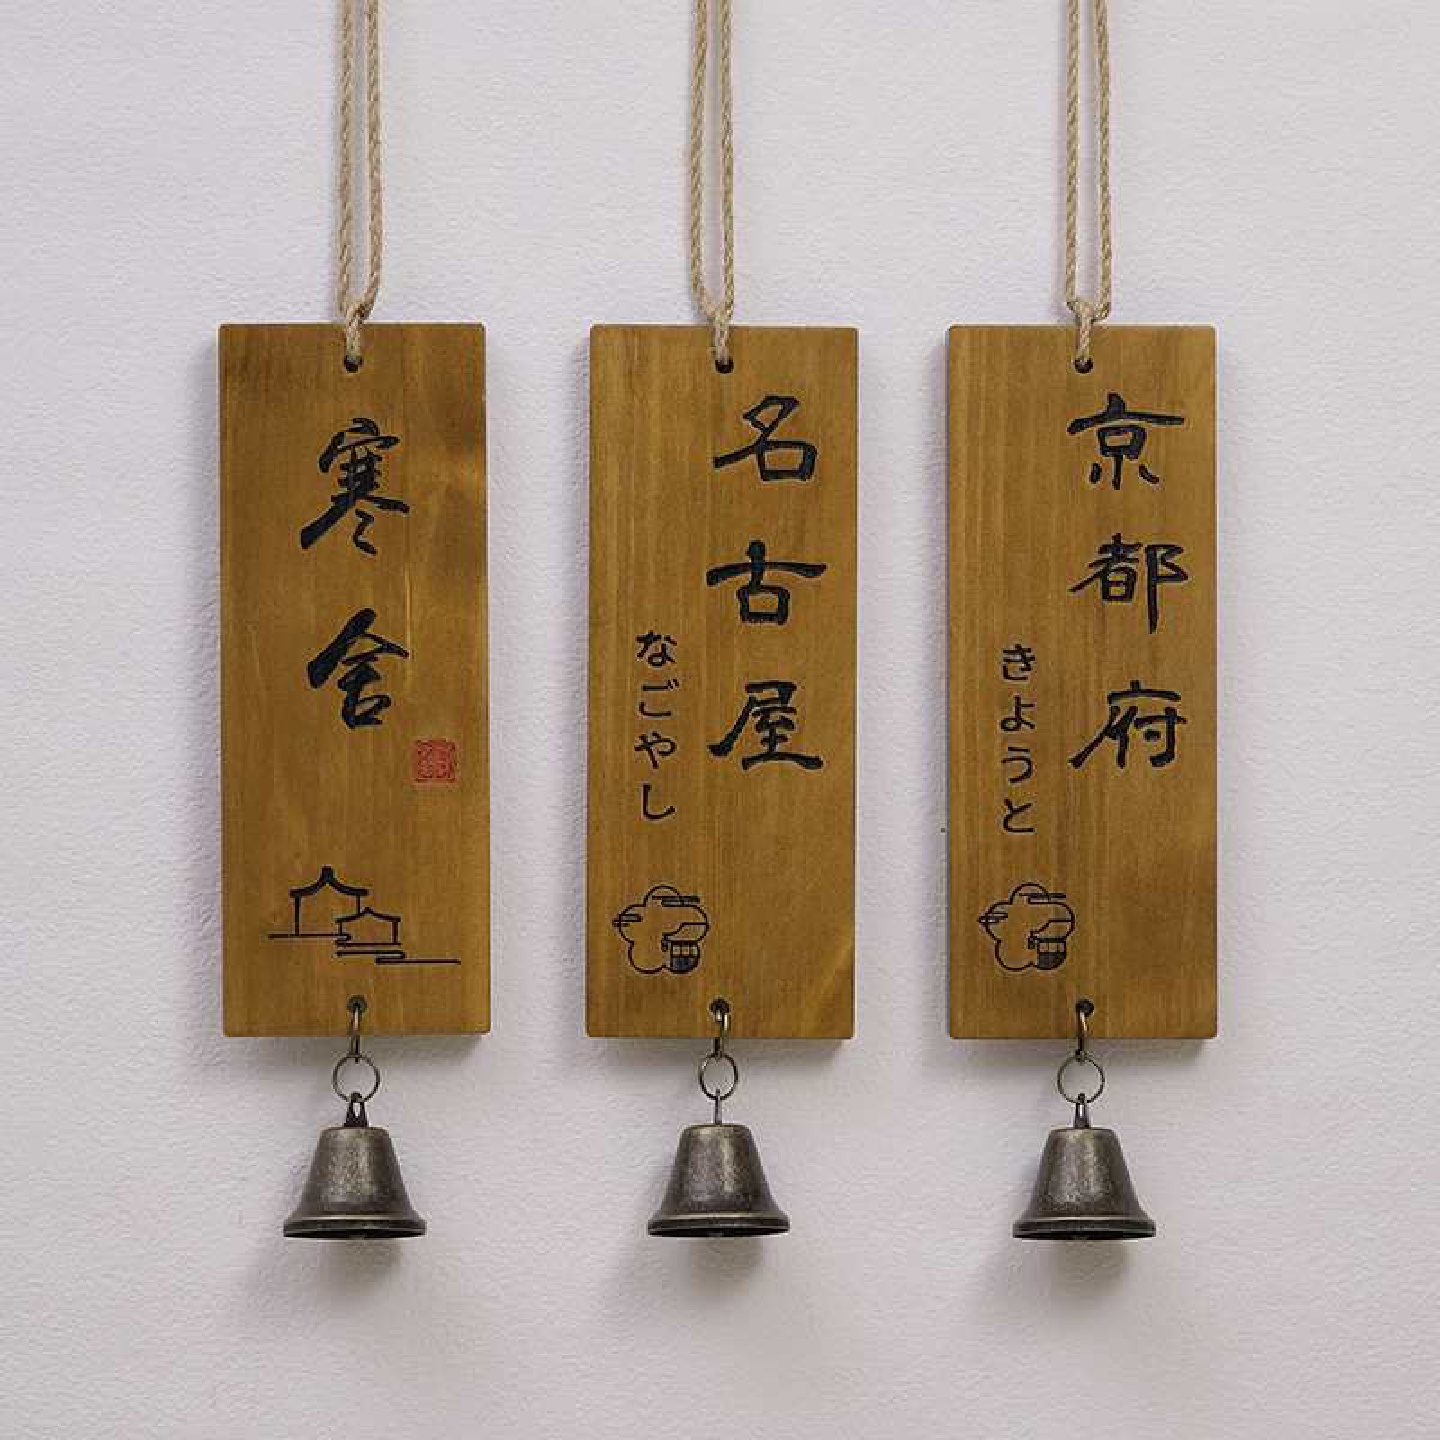 寒舍
名古屋
なごやし
京都府
きようと